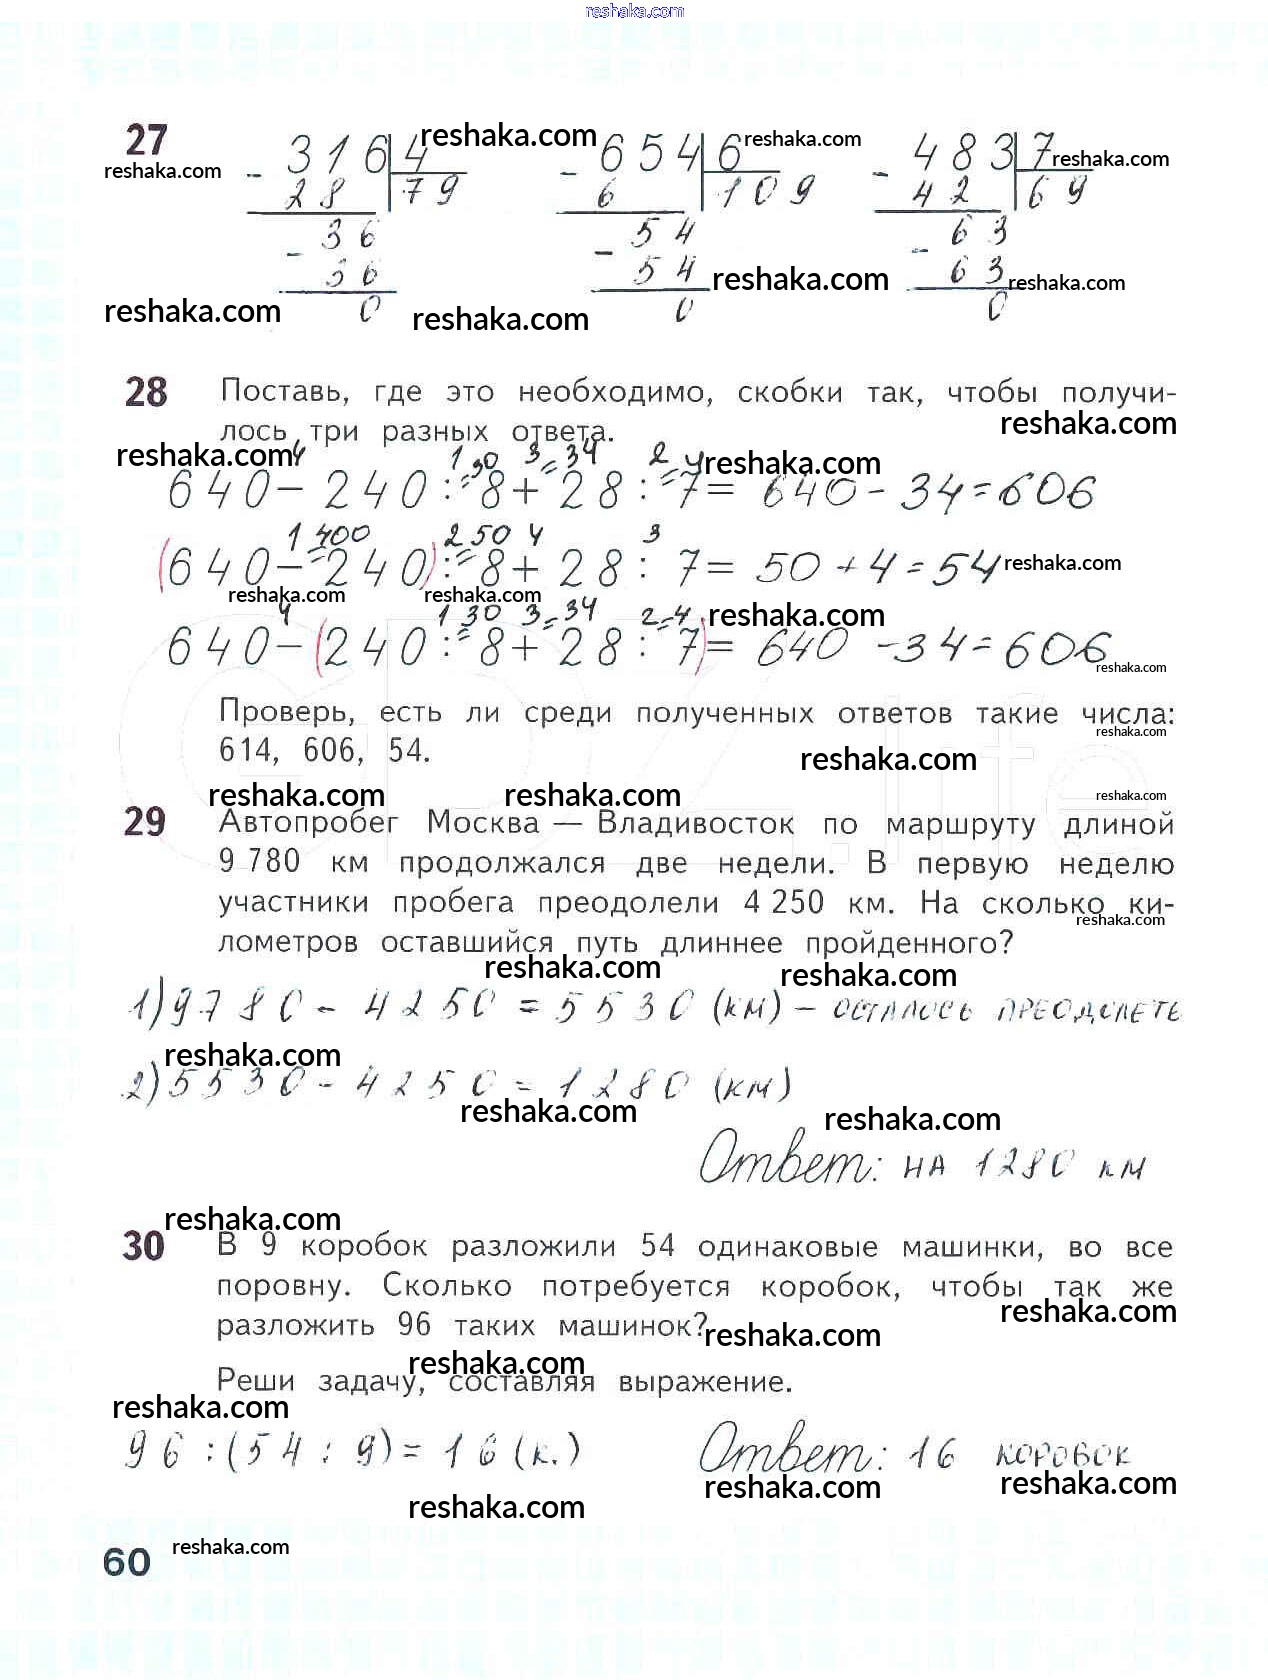 reshaka.com
27
316 4 reshaka.com
654 6 reshaka.com
483 7 reshaka.com
reshaka.com
- 28 79
- 6 109
- 42 69
36 54 63
- 36 - 54 reshaka.com - 63 reshaka.com
0 0 0
reshaka.com reshaka.com
28 Поставь, где это необходимо, скобки так, чтобы получи-
reshaka.com
лось три разных ответа.
reshaka.com
4 1 30 3 = 34 2 = 4 reshaka.com
640 - 240 : 8 + 28 : 7 = 640 - 34 = 606
1 400 2 50 4 3
(640 - 240) : 8 + 28 : 7 = 50 + 4 = 54 reshaka.com
reshaka.com reshaka.com
4 1 30 3 = 34 2 = 4 reshaka.com
640 - (240 : 8 + 28 : 7) = 640 - 34 = 606
reshaka.com
Проверь, есть ли среди полученных ответов такие числа:
reshaka.com
614, 606, 54.
reshaka.com
GDZ.life
reshaka.com reshaka.com reshaka.com
29 Автопробег Москва — Владивосток по маршруту длиной
9 780 км продолжался две недели. В первую неделю
участники пробега преодолели 4 250 км. На сколько ки-
reshaka.com
лометров оставшийся путь длиннее пройденного?
reshaka.com reshaka.com
1) 9780 - 4250 = 5530 (км) - осталось преодолеть
reshaka.com
2) 5530 - 4250 = 1280 (км)
reshaka.com reshaka.com
Ответ: на 1280 км
reshaka.com
30 В 9 коробок разложили 54 одинаковые машинки, во все
поровну. Сколько потребуется коробок, чтобы так же
reshaka.com
разложить 96 таких машинок?
reshaka.com
reshaka.com
Реши задачу, составляя выражение.
reshaka.com
96 : (54 : 9) = 16 (к.) Ответ: 16 коробок
reshaka.com reshaka.com
reshaka.com
60 reshaka.com